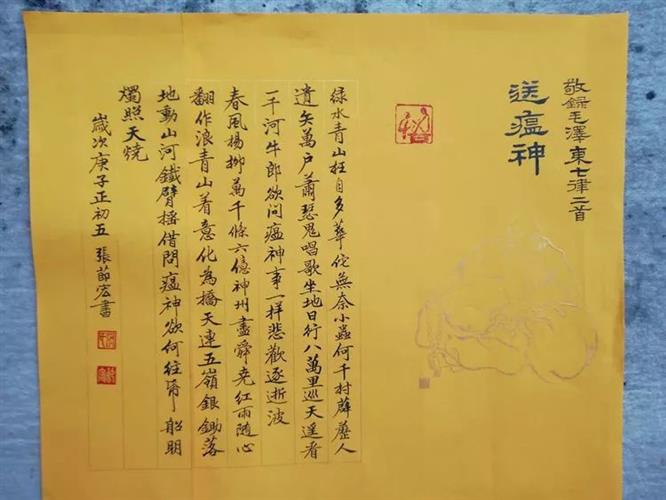 敬錄毛澤東七律二首
送瘟神
绿水青山枉自多華佗無奈小蟲何千村薜荔人
遺矢萬户蕭瑟鬼唱歌坐地日行八萬里巡天遥看
一千河牛郎欲問瘟神事一样悲歡逐逝波
春風楊柳萬千條六億神州盡舜堯红雨隨心
翻作浪青山着意化為橋天連五嶺銀鋤落
地動山河鐵臂摇借問瘟神欲何往船明
燭照天燒
歲次庚子正初五 張節宏書